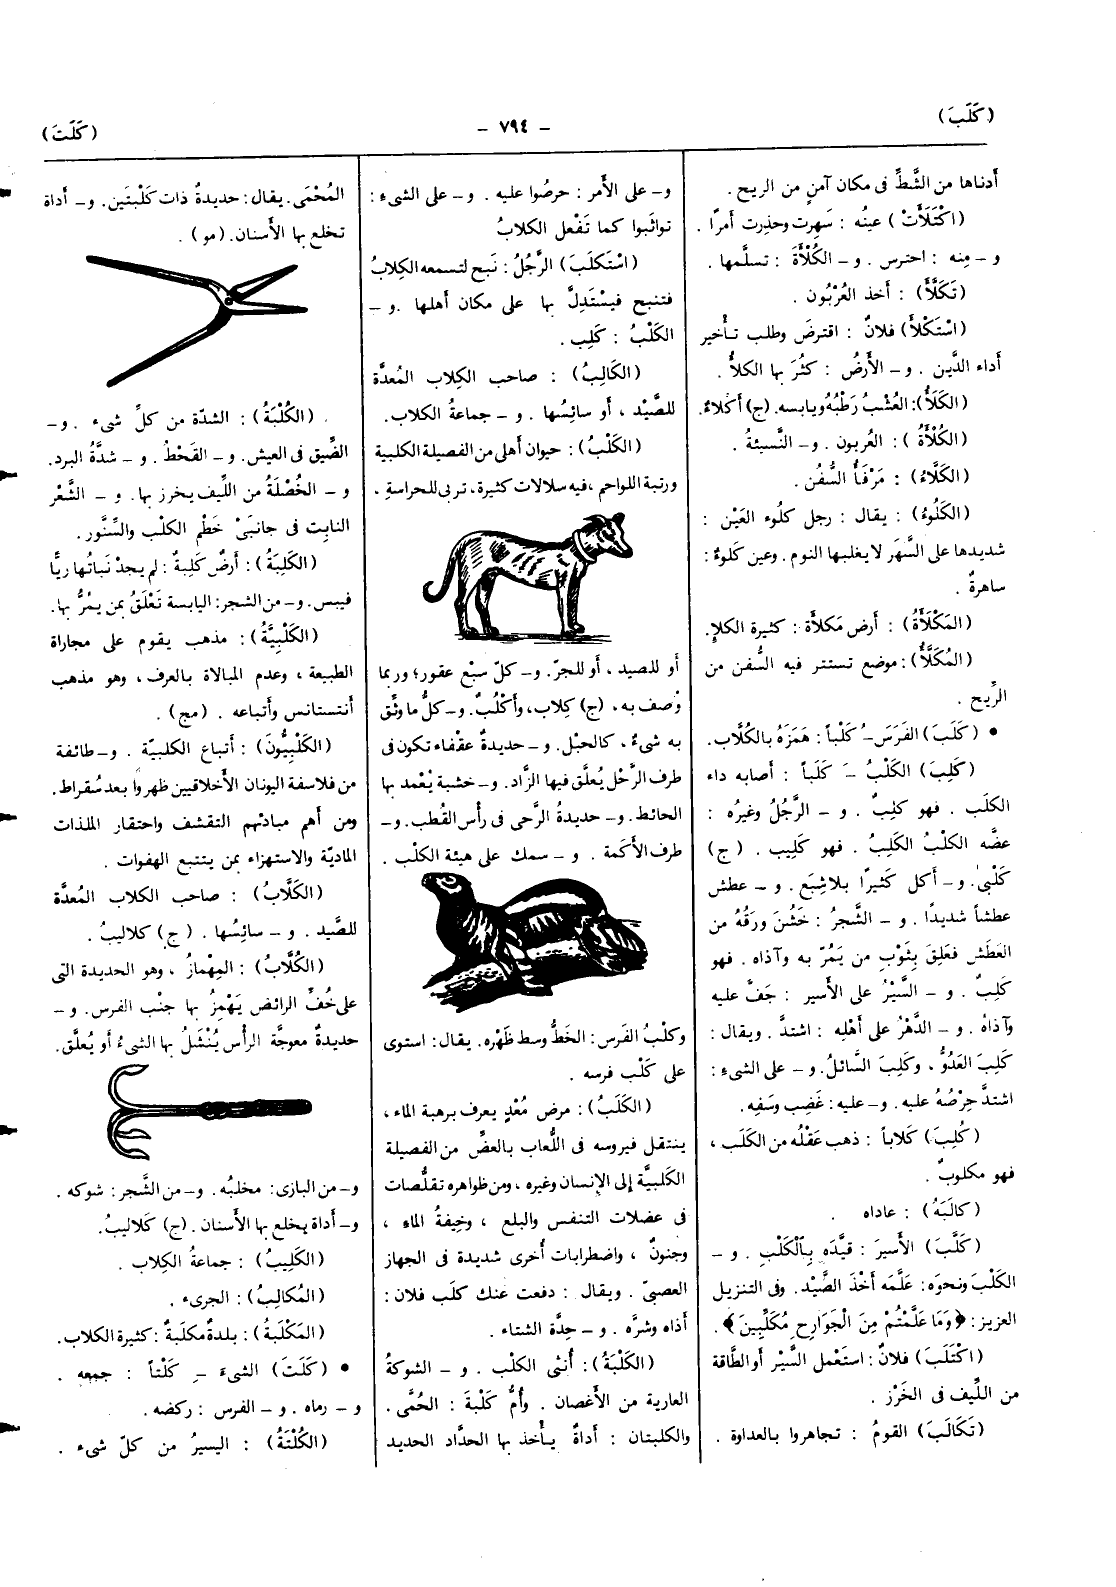 (كَلَبَ)
- ٧٩٤ -
(كَلَتَ)
أدناها من الشَّطِّ فى مكان آمنٍ من الريح .
(اكْتَلَأَتْ) عينه : سَهِرت وحذِرت أمرًا .
و – مِنه : احترس . و – الكُلْأَةَ : تسلَّمها .
(تَكَلَّأَ) : أخذ العُرْبُون .
(اسْتَكْلأَ) فلانٌ : اقترضَ وطلب تأخير
أداء الدَّين . و – الأَرضُ : كثُرَ بها الكلأُ .
(الكَلَأُ): العُشْبُ رَطْبُه ويابسه. (ج) أكْلاءٌ.
(الكُلْأَةُ) : العُربون . و – النَّسيئةُ .
(الكَلَّاءُ) : مَرْفَأُ السُّفُن .
(الكَلُوءُ) : يقال : رجل كلُوء العَيْن :
شديدها على السَّهَر لا يغلبها النوم . وعين كَلوءٌ :
ساهرةٌ .
(المَكْلَأَةُ) : أرض مَكلأَة : كثيرة الكلإِ.
(المُكَلَّأُ) : موضع تستتر فيه السُّفن من
الرِّيح .
• (كَلَبَ) الفَرَسَ-ُ كَلْباً : هَمَزَهُ بالكُلَّاب.
(كَلِبَ) الكَلْبُ -َ كَلَباً : أصابه داء
الكلَب . فهو كلِبٌ . و – الرَّجُلُ وغيرُه :
عضَّه الكلْبُ الكَلِبُ . فهو كَلِيب . (ج)
كَلْبَى . و – أكل كثيرًا بلاشِبَع . و – عطش
عطشاً شديدًا . و – الشَّجرُ : خَشُنَ ورَقُهُ من
العَطَش فعَلِقَ بِثَوْبِ من يَمُرّ به وآذاه . فهو
كَلِبٌ . و – السَّيْرُ على الأسير : جَفَّ عليه
وآذاهُ . و – الدَّهْرُ على أهْلِه : اشتدَّ . ويقال :
كَلِبَ العَدُوُّ ، وكَلِبَ السَّائلُ. و – على الشىءِ :
اشتدَّ حِرْصُهُ عليه. و – عليه: غَضِب وسَفِه.
(كُلِبَ) كَلاباً : ذهب عَقْلُه من الكَلَب ،
فهو مكلوبٌ .
(كالَبَهُ) : عاداه .
(كَلَّبَ) الأسيرَ : قيَّدَه بِالْكَلْبِ . و –
الكَلْبَ ونحوَه: علَّمَه أخْذَ الصَّيْد. وفى التنزيل
العزيز: ﴿وَمَا عَلَّمْتُمْ مِنَ الْجَوَارِحِ مُكَلِّبِينَ﴾ .
(اكْتَلَبَ) فلانٌ : استَعْمل السَّيْر أو الطَّاقة
من اللِّيف فى الخَرْز .
(تَكَالَبَ) القومُ : تجاهروا بالعداوة .
و – على الأمر : حرصُوا عليه . و – على الشىء :
تواثَبوا كما تَفْعل الكلابُ
(اسْتَكلَبَ) الرَّجُلُ : نَبح لتسمعه الكِلابُ
فتنبح فيسْتَدِلَّ بها على مكان أهلها . و –
الكَلْبُ : كَلِب .
(الكَالِبُ) : صاحب الكِلاب المُعدَّة
للصَّيْد ، أو سائِسُها . و – جماعةُ الكلاب.
(الكَلْبُ) : حيوان أهلى من الفصيلة الكلبية
ورتبة اللواحم ، فيه سلالات كثيرة، تربى للحراسةِ ،
أَو للصيد ، أو للجرّ. و – كلّ سبْع عقور؛ وربما
وُصف به، (ج) كِلاب، وأَكْلُبٌ. و – كلُّ ما وثِّق
به شىءٌ ، كالحبْل. و – حديدةٌ عقْفاء تكون فى
طرف الرَّحْل يُعلَّق فيها الزَّاد. و – خشبة يُعْمد بها
الحائط. و – حديدةُ الرَّحى فى رأس القُطب. و –
طرف الأكَمة . و – سمك على هيئة الكلْب .
وكلْبُ الفَرَس: الخَطُّ وسط ظَهْره. يقال: استوى
على كَلْب فرسه .
(الكَلَبُ) : مرض مُعْدٍ يعرف برهبة الماء ،
ينتقل فيروسه فى اللُّعاب بالعضِّ من الفصيلة
الكلبيَّة إلى الإنسان وغيره ، ومن ظواهره تقلُّصات
فى عضلات التنفس والبلع ، وخِيفةُ الماء ،
وجنونٌ ، واضطرابات أُخرى شديدة فى الجهاز
العصبىّ . ويقال : دفعت عنك كلَب فلان :
أذاه وشرَّه . و – حِدَّة الشتاء .
(الكَلْبَةُ) : أُنثى الكلْب . و – الشوكةُ
العارية من الأَغصان . وأُمُّ كَلْبَةَ : الحُمَّى .
والكلبتان : أداةٌ يأخذ بها الحدَّاد الحديد
المُحْمَى. يقال : حديدةٌ ذات كَلْبتَين. و – أداة
تخلع بها الأَسنان. (مو) .
(الكُلْبَةُ) : الشدّة من كلِّ شىء . و –
الضِّيق فى العيش. و – القَحْط . و – شدَّةُ البرد.
و – الخُصْلَةُ من اللِّيف يخرز بها. و – الشَّعْر
النابِت فى جانبَىْ خَطْم الكلْب والسِّنَّور .
(الكَلِبَةُ) : أرضٌ كَلِبةٌ : لم يجدْ نَباتُها ريًّا
فيبس. و – من الشجر: اليابسة تَعْلَقُ بمن يمُرُّ بها.
(الكَلْبِيَّةُ) : مذهب يقوم على مجاراة
الطبيعة ، وعدم المبالاة بالعرف، وهو مذهب
أنتستانس وأتباعه . (مج) .
(الكَلْبِيُّونَ) : أتباع الكلبيّة . و – طائفة
من فلاسفة اليونان الأخلاقيين ظهروا بعد سُقراط.
ومن أهم مبادئهم التقشف واحتقار الملذات
الماديّة والاستهزاء بمن يتتبع الهفوات .
(الكَلَّابُ) : صاحب الكلاب المُعدَّة
للصَّيد . و – سائِسُها . (ج) كلاليبُ .
(الكُلَّابُ) : المِهْمازُ ، وهو الحديدة التى
على خُفِّ الرائض يَهْمِزُ بها جنْب الفرس. و –
حديدةٌ معوجَّة الرأس يُنْشَلُ بها الشىءُ أو يُعلَّق.
و – من البازى: مخلبُه. و – من الشَّجر : شوكه .
و – أداة يخلع بها الأسنان. (ج) كَلاليبُ.
(الكَلِيبُ) : جماعةُ الكلاب .
(المُكالِبُ) : الجرىء .
(المَكْلَبَةُ) : بلدةٌ مكلَبةٌ : كثيرة الكلاب.
• (كَلَتَ) الشىءَ -ِ كَلْتاً : جمعه .
و – رماه . و – الفرس : ركضه.
(الكُلْتَةُ) : اليسيرُ من كلّ شىء .